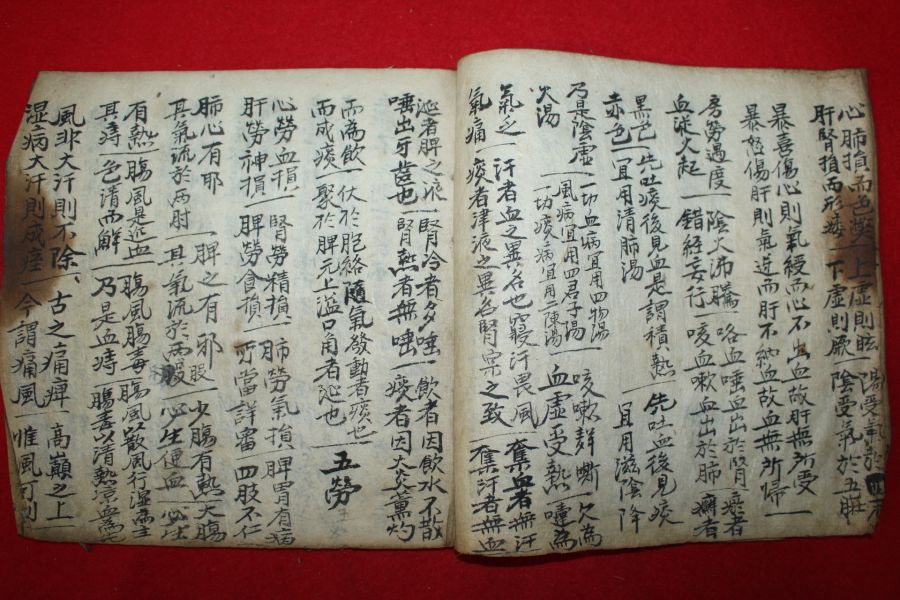 心肺損而色獘 上虛則眩 陽受氣於
肝腎損而形痿 下虛則厥 陰受氣於五臟
暴喜傷心則氣緩而心不出血故肝無所受
暴怒傷肝則氣逆而肝不納血故血無所歸
房勞過度 陰火沸騰 咯血唾血出於腎 瘀者
血從火起 錯經妄行 咳血嗽血出於肺 癖者
黑色 先吐痰後見血是謂積熱 先吐血後見痰
赤色 宜用清肺湯 宜用滋陰降
火湯 一切痰病宜用二陳湯
乃是陰虛 一切血病宜用四物湯 咳嗽群嘶 欠為
風病宜用四君子湯 血虛受熱 嚏為
氣乏 汗者血之異名也寢汗畏風 奪血者無汗
氣痛 痰者津液之異名腎宗之致 奪汗者無血
涎者脾之液 腎冷者多唾 飲者因飲水不散
唾出牙齒也 腎熱者無唾 痰者因火炎薰灼
而為飲 伏於胞絡隨氣發動者痰也
而成痰 聚於脾元上溢口角者涎也 五勞
心勞血損 腎勞精損 肺勞氣損 脾胃有病
肝勞神損 脾勞食損 所當詳審 四肢不仁
肺心有邪 脾之有邪 少腸有熱 大腸
其氣流於兩肘 其氣流於兩股 心生便血 心
有熱 腸風是近血 腸風腸毒 腸風以散風行濕
其痔 色清而解 乃是血痔 腸毒以清熱凉血為
風非大汗則不除 古之痛痺 高巔之上
湿病大汗則成痙 今謂痛風 惟風可到